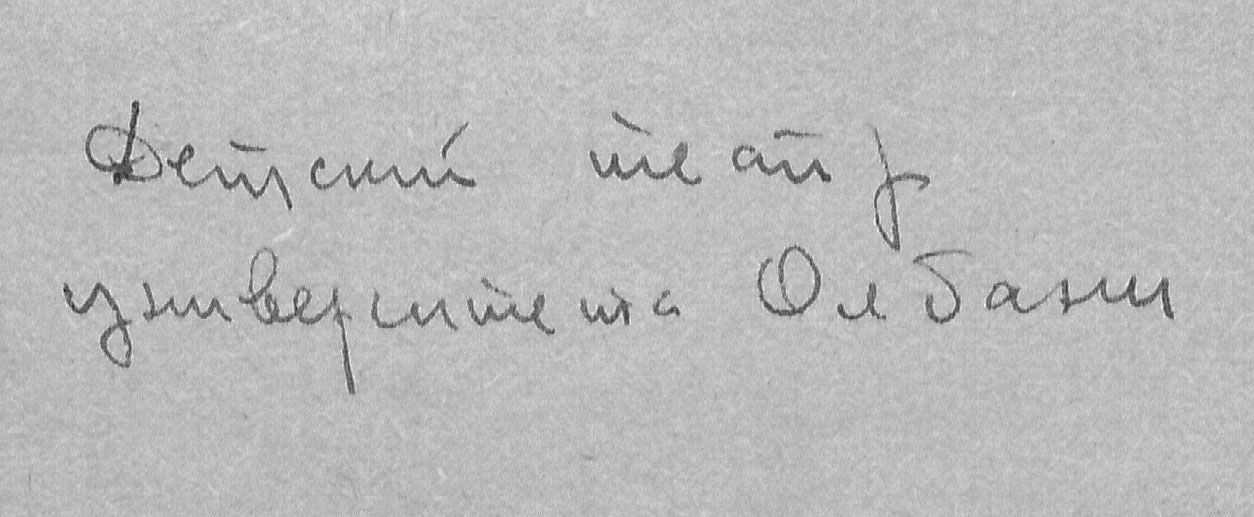 Детский театр
университета Олбани